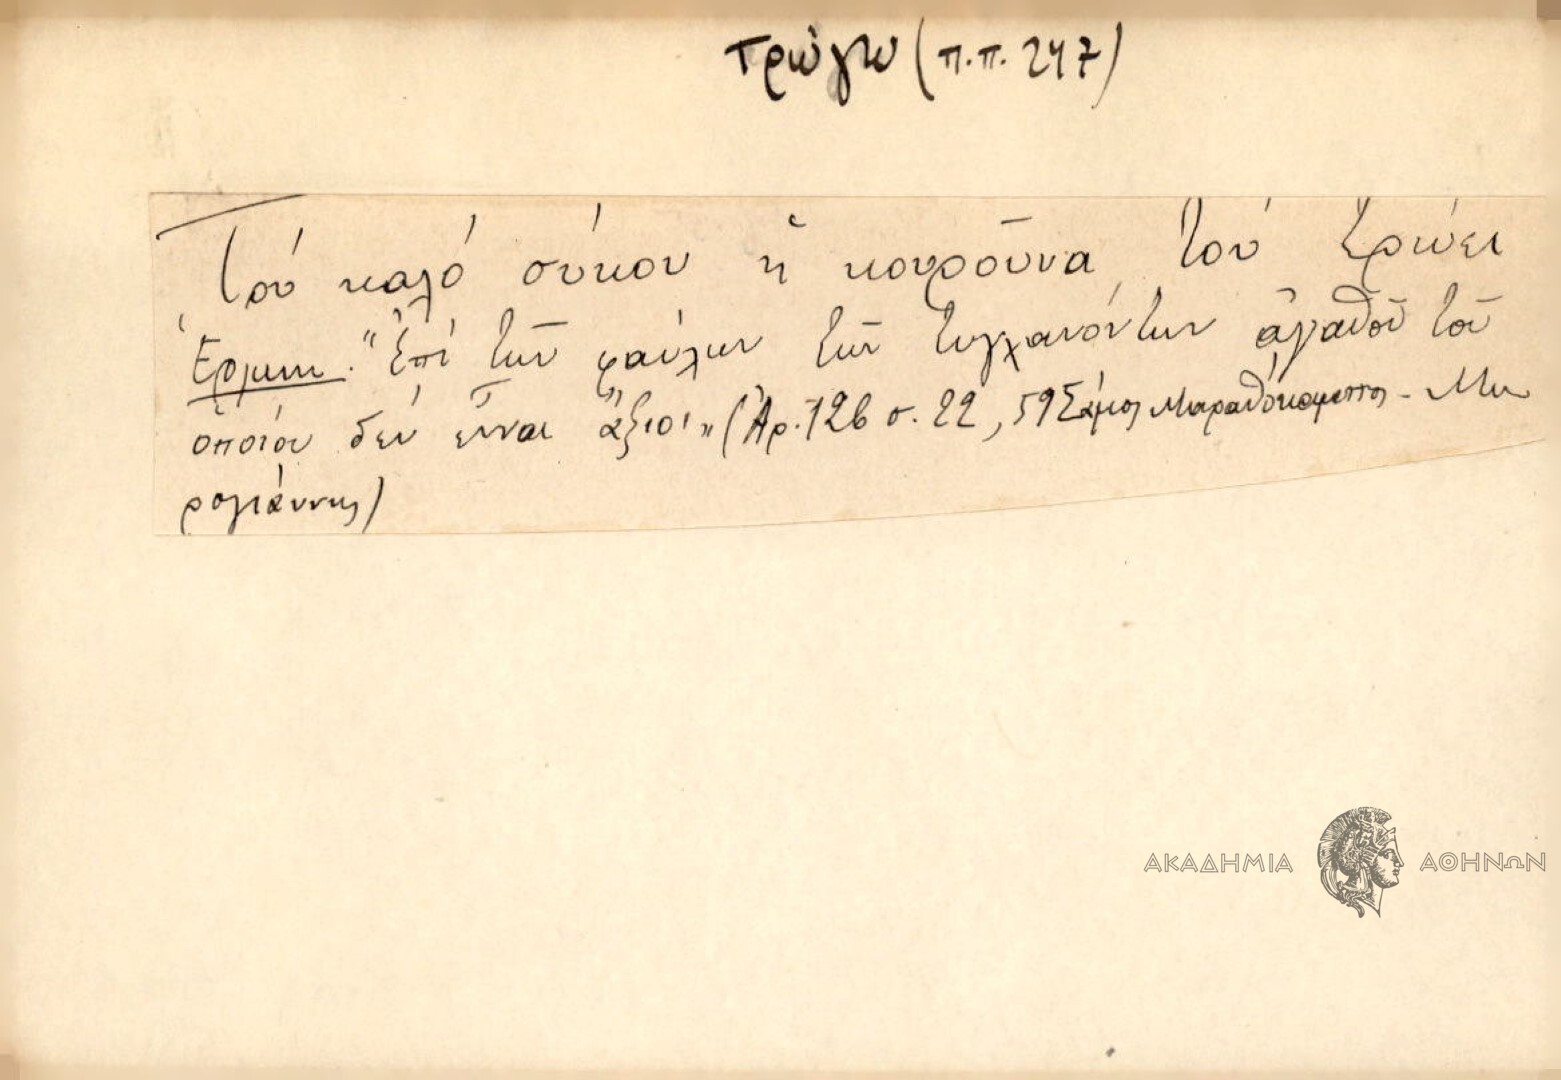 τρώγω (π.π. 247)
Τού καλό σύκου ἡ κουροῦνα τού τρώει
Ἑρμην. "Ἐπί τῶν φαύλων τῶν τυγχανόντων ἀγαθοῦ τοῦ
ὁποίου δέν εἶναι ἄξιοι" (Ἀρ. 126 σ. 22, 59 Σάμος Μαραθόκαμπος - Μαυ
ρογιάννης)
ΑΚΑΔΗΜΙΑ ΑΘΗΝΩΝ